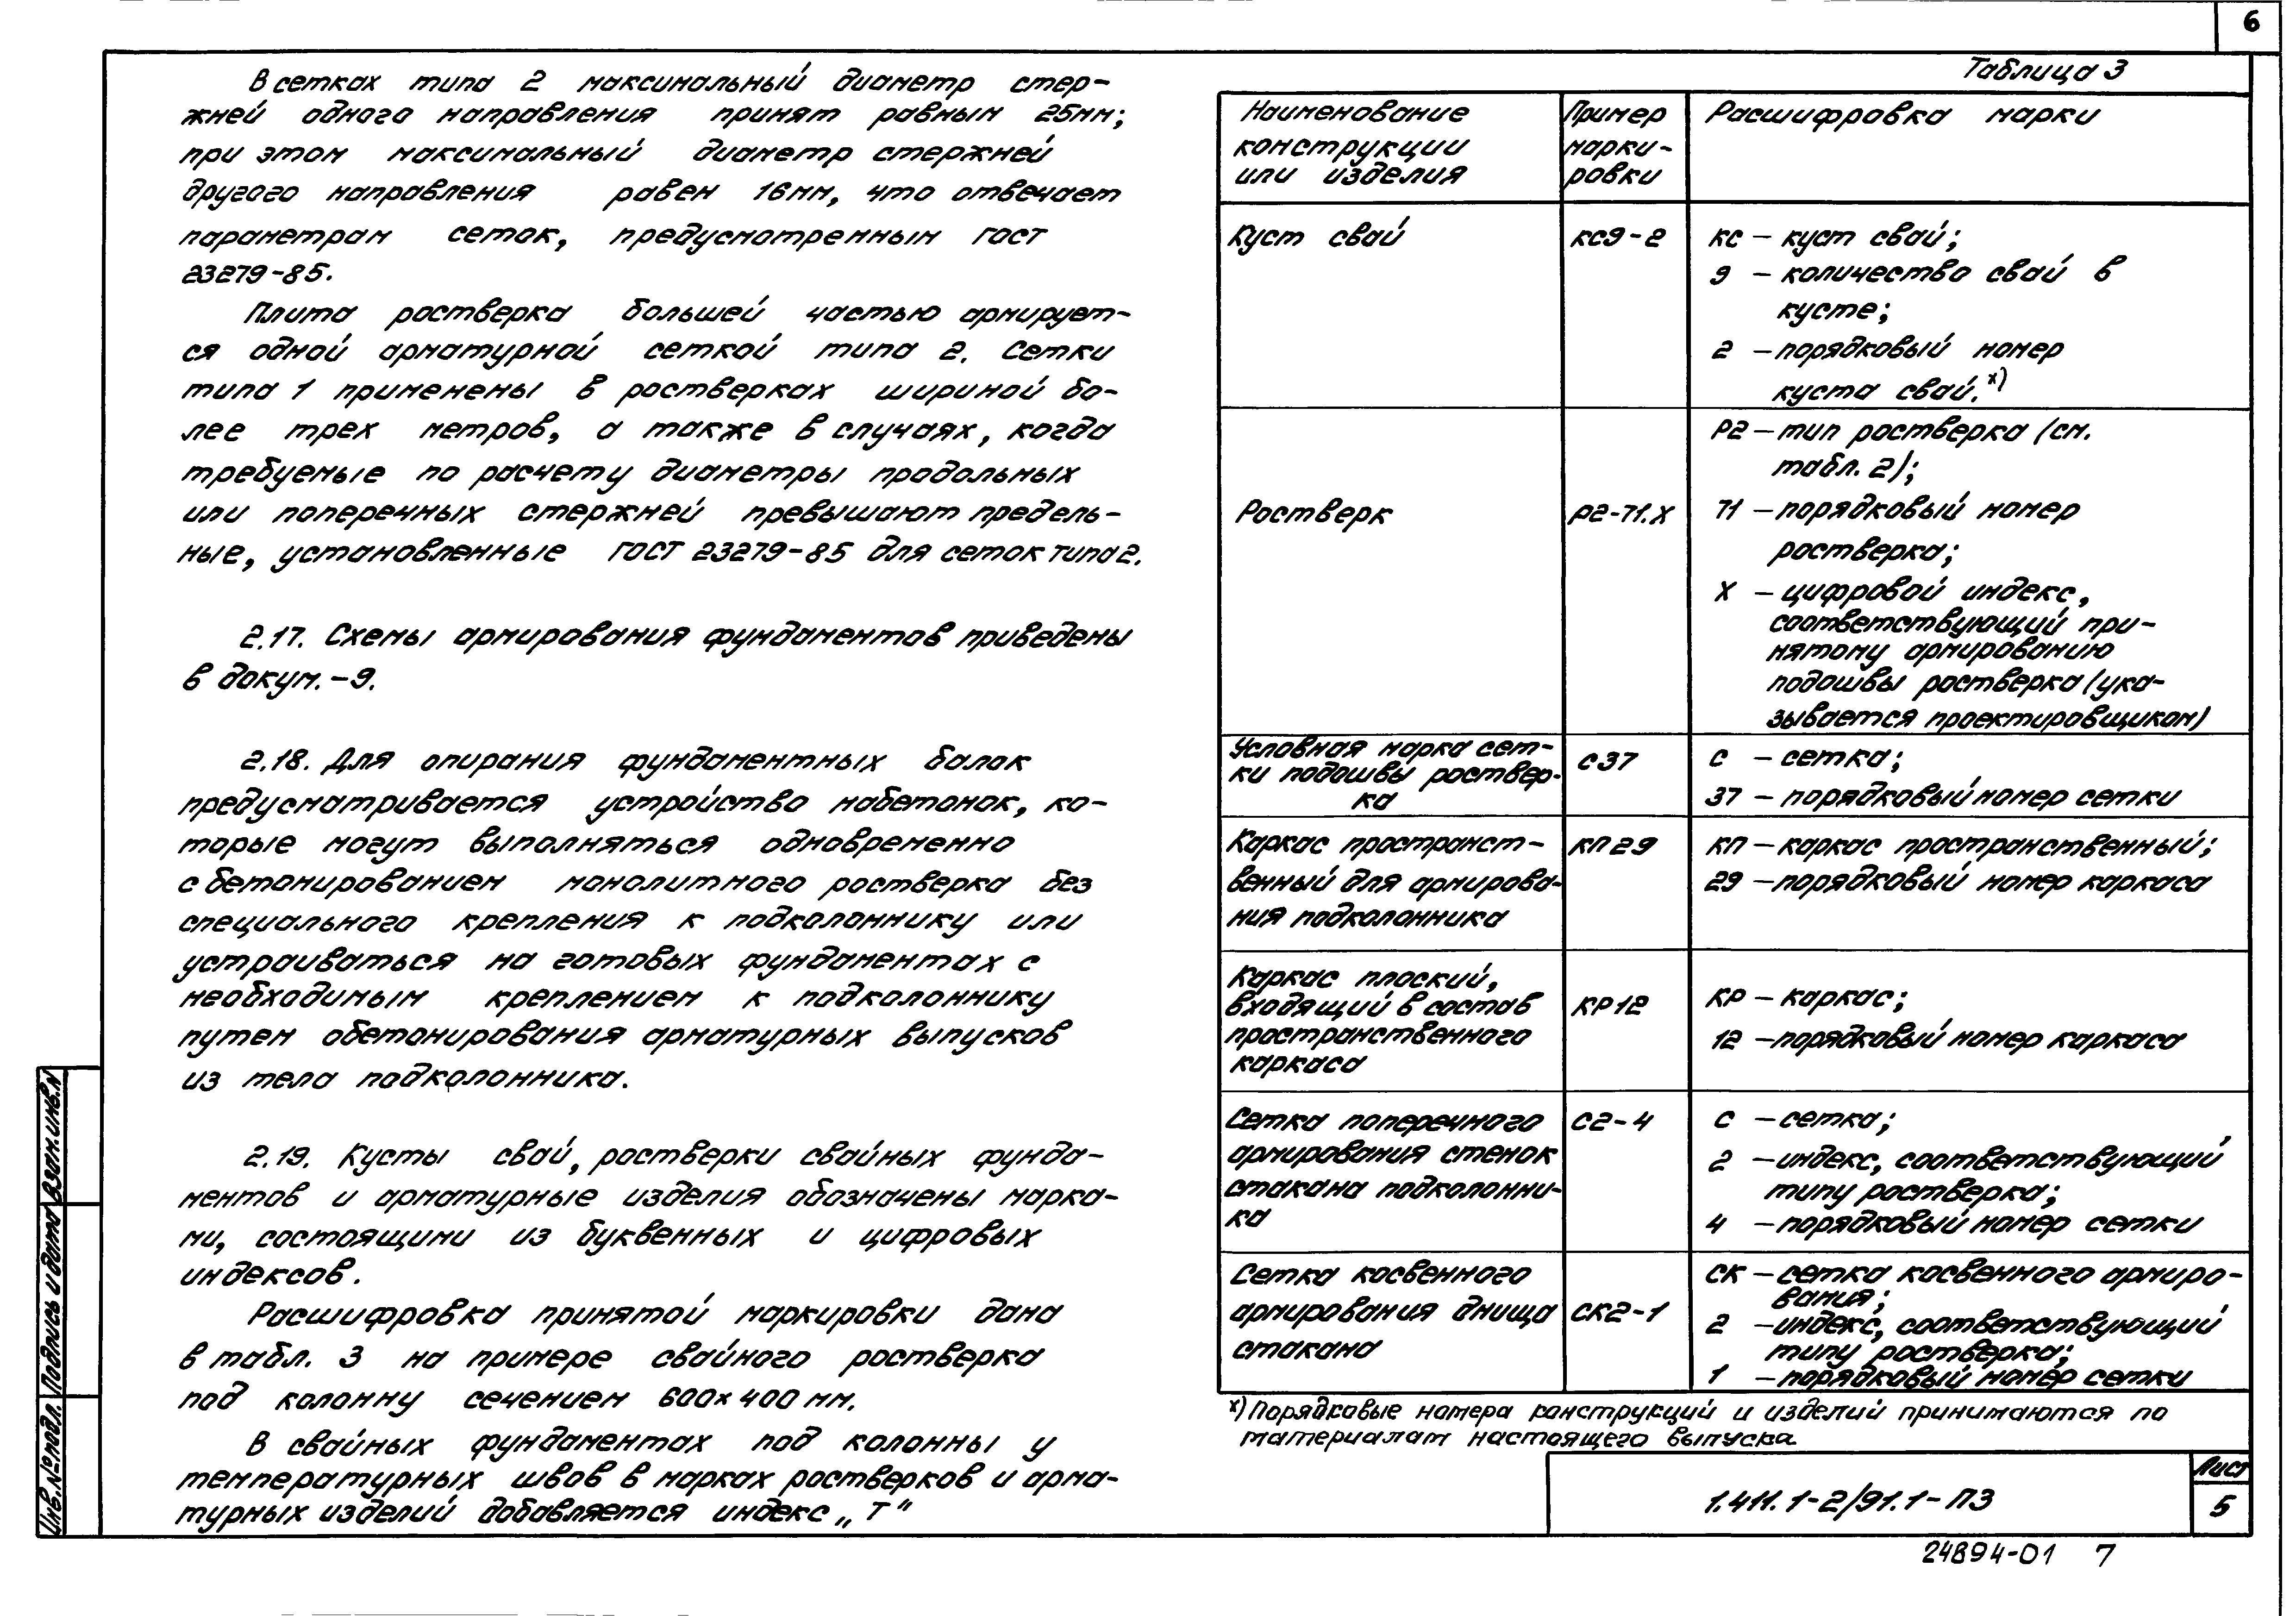 6
В сетках типа 2 максимальный диаметр стер-
жней одного направления принят равным 25мм;
при этом максимальный диаметр стержней
другого направления равен 16мм, что отвечает
параметрам сеток, предусмотренным ГОСТ
23279-85.
Плита ростверка большей частью армирует-
ся одной арматурной сеткой типа 2. Сетки
типа 1 применены в ростверках шириной бо-
лее трех метров, а также в случаях, когда
требуемые по расчету диаметры продольных
или поперечных стержней превышают предель-
ные, установленные ГОСТ 23279-85 для сеток типа 2.
2.17. Схемы армирования фундаментов приведены
в докум. -9.
2.18. Для опирания фундаментных балок
предусматривается устройство набетонок, ко-
торые могут выполняться одновременно
с бетонированием монолитного ростверка без
специального крепления к подколоннику или
устраиваться на готовых фундаментах с
необходимым креплением к подколоннику
путем обетонирования арматурных выпусков
из тела подколонника.
2.19. Кусты свай, ростверки свайных фунда-
ментов и арматурные изделия обозначены марка-
ми, состоящими из буквенных и цифровых
индексов.
Расшифровка принятой маркировки дана
в табл. 3 на примере свайного ростверка
под колонну сечением 600×400 мм.
В свайных фундаментах под колонны у
температурных швов в марках ростверков и арма-
турных изделий добавляется индекс „Т"
Таблица 3
Наименование Пример Расшифровка марки
конструкции марки-
или изделия ровки
Куст свай КС9-2 КС – куст свай;
9 – количество свай в
кусте;
2 – порядковый номер
куста свай.ˣ⁾
Р2 – тип ростверка (см.
табл. 2);
Ростверк Р2-71.Х 71 – порядковый номер
ростверка;
Х – цифровой индекс,
соответствующий при-
нятому армированию
подошвы ростверка (ука-
зывается проектировщиком)
Условная марка сет- С37 С – сетка;
ки подошвы роствер-
ка 37 – порядковый номер сетки
Каркас пространст- КП29 КП – каркас пространственный;
венный для армирова- 29 – порядковый номер каркаса
ния подколонника
Каркас плоский,
входящий в состав КР12 КР – каркас;
пространственного 12 – порядковый номер каркаса
каркаса
Сетка поперечного С2-4 С – сетка;
армирования стенок 2 – индекс, соответствующий
стакана подколонни- типу ростверка;
ка 4 – порядковый номер сетки
Сетка косвенного СК – сетка косвенного армиро-
вания;
армирования днища СК2-1 2 – индекс, соответствующий
стакана типу ростверка;
1 – порядковый номер сетки
х) Порядковые номера конструкций и изделий принимаются по
материалам настоящего выпуска
1.411.1-2/91.1-ПЗ
Лист
5
24894-01 7
Инв.№подл. Подпись и дата Взам.инв.N